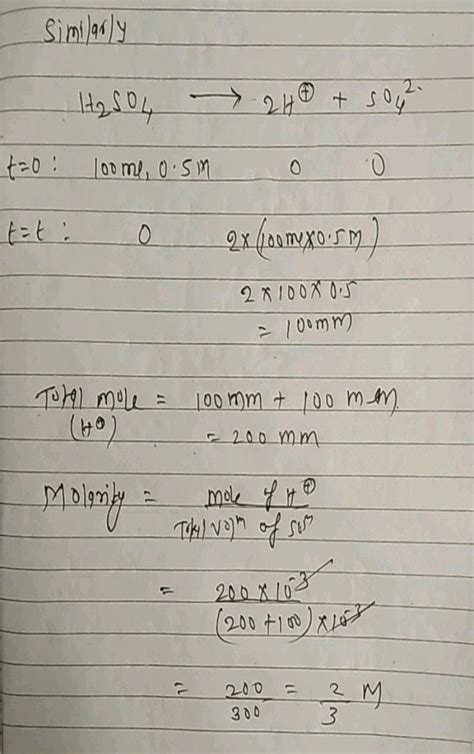 Similarly
H₂SO₄ ⟶ 2H⊕ + SO₄²⁻
t=0 : 100ml, 0.5M 0 0
t=t : 0 2×(100ml×0.5M)
2×100×0.5
= 100mM
Total mole = 100mm + 100 mm
(H⊕) = 200 mm
Molarity = mole of H⊕ / Total Volᵐ of solⁿ
= 200×10⁻³ / (200+100)×10⁻³
= 200/300 = 2/3 M